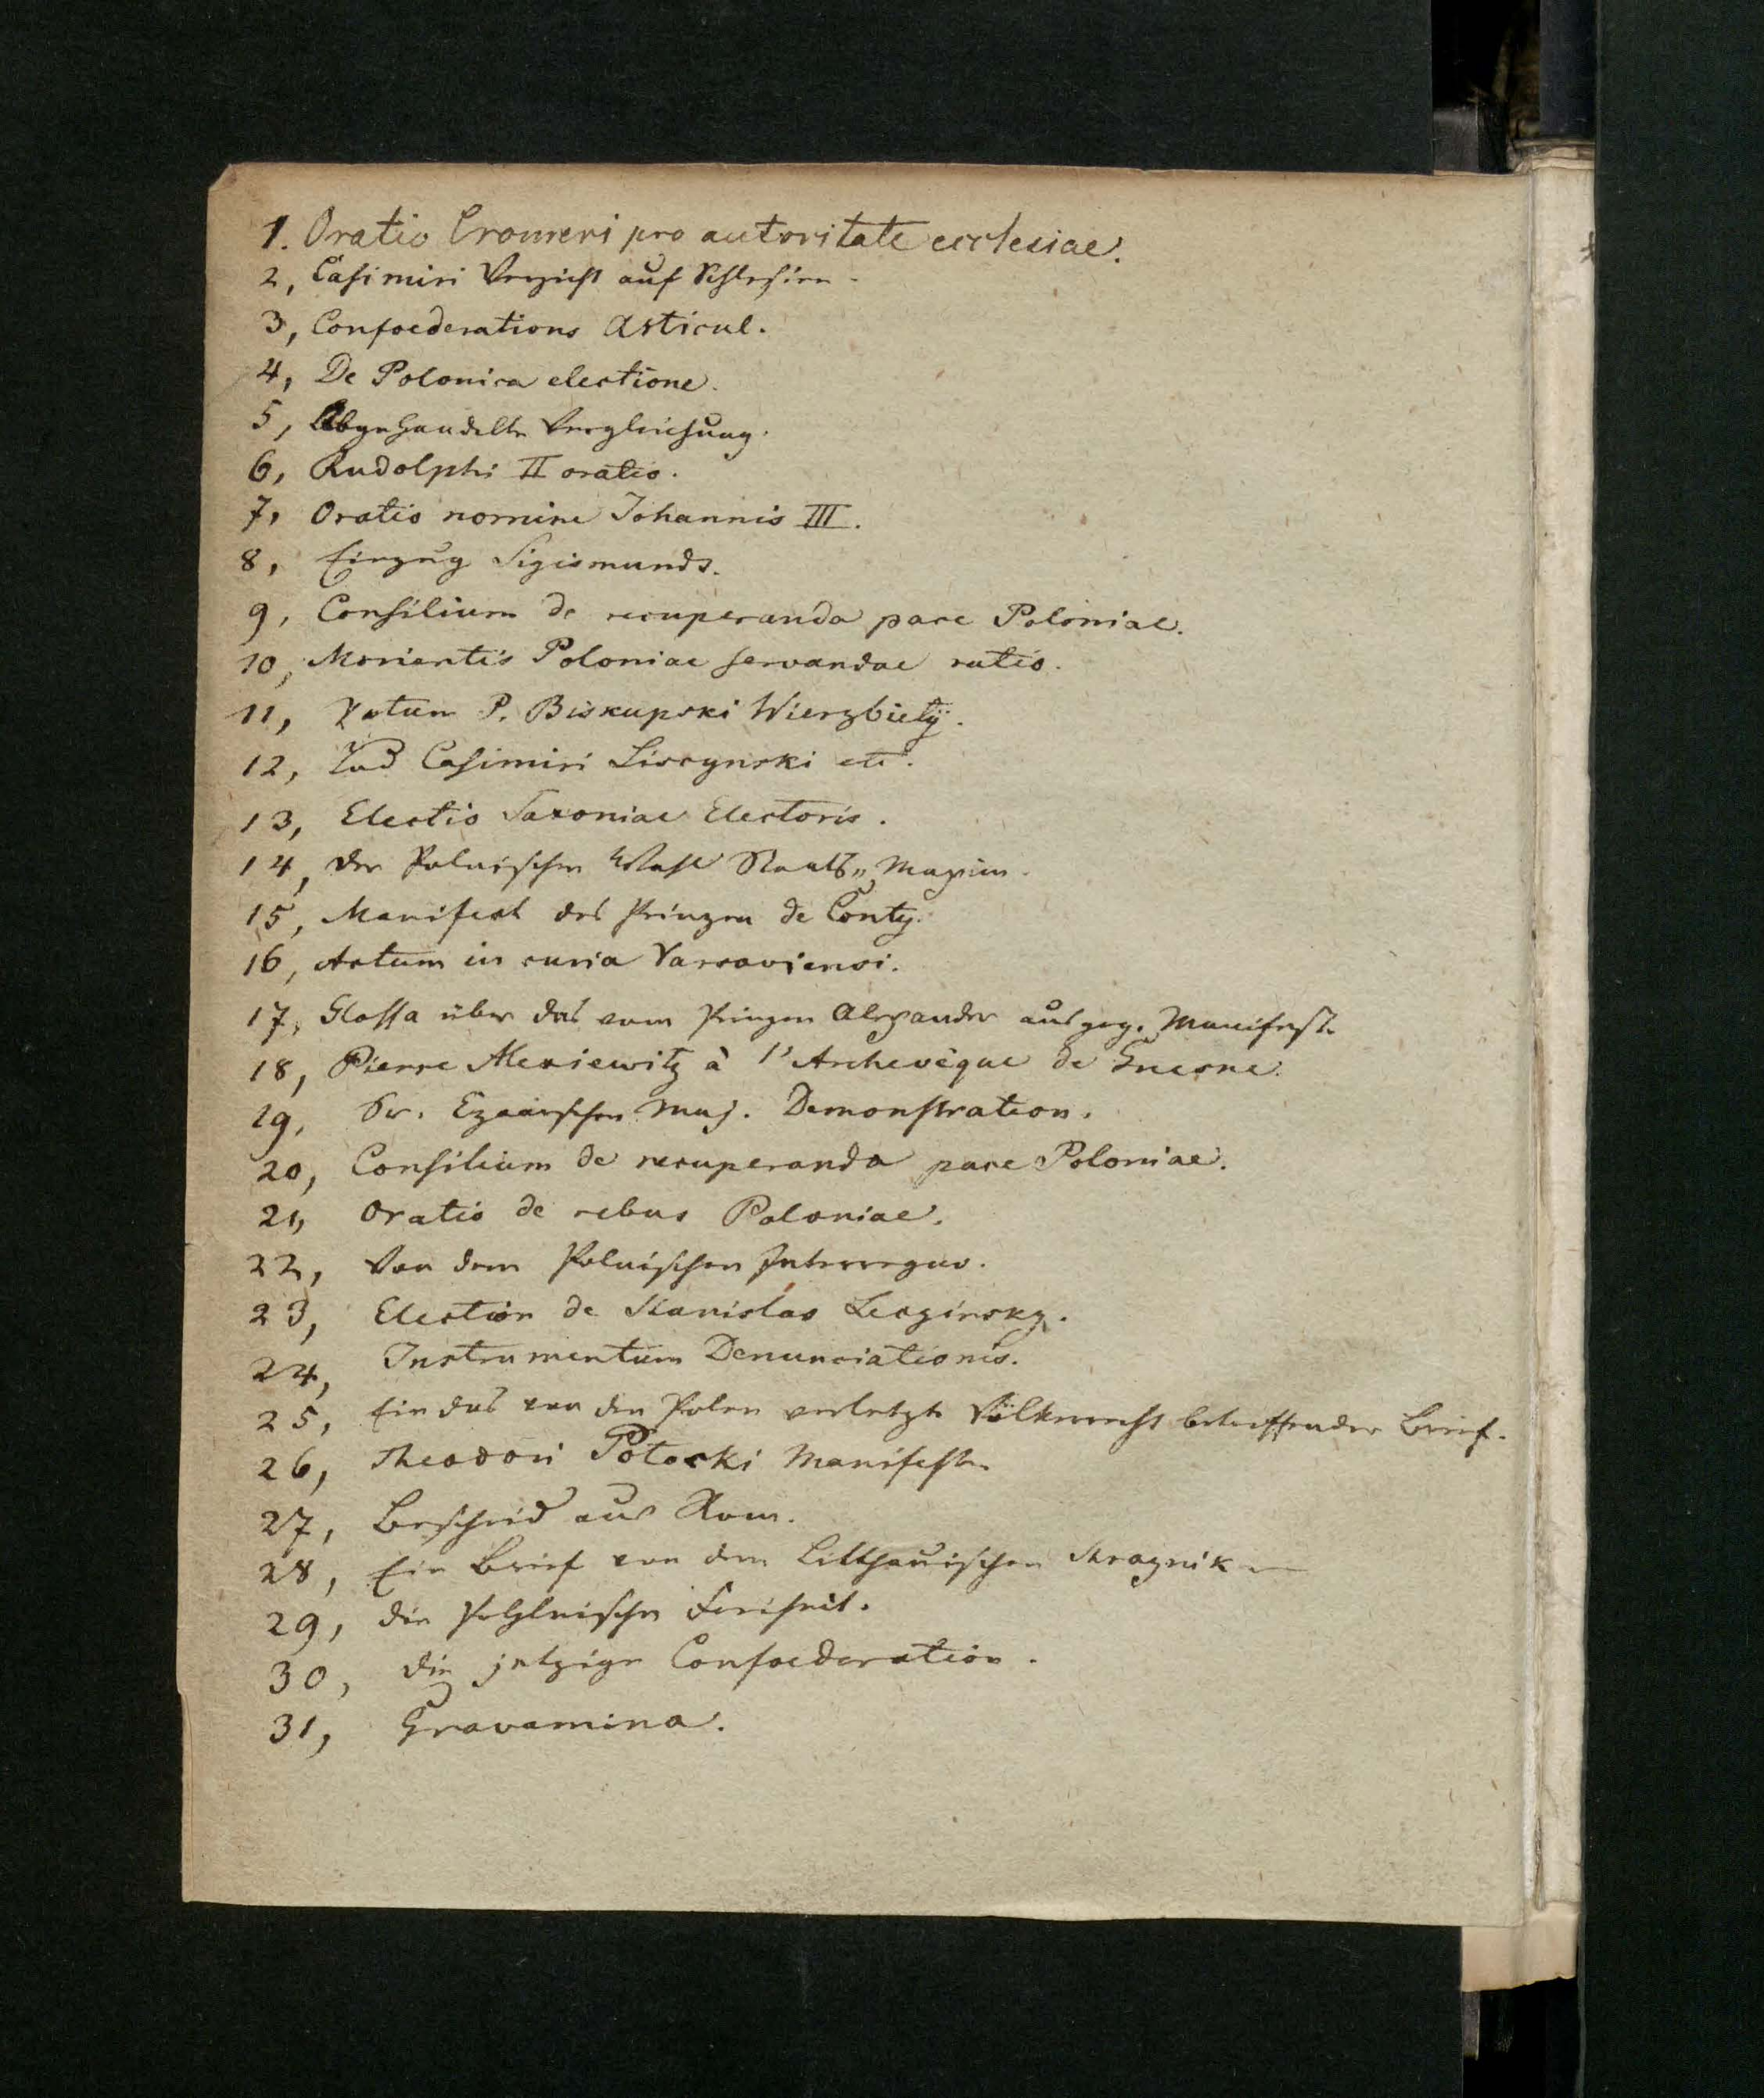 1. Oratio Cromeri pro autoritate ecclesiae.
2, Casimiri Verzicht auf Schlesien.
3, Confoederations Articul.
4, De Polonica electione.
5, Abgehandelte Vergleichung.
6, Rudolphi II oratio.
7, Oratio nomine Johannis III.
8, Einzug Sigismunds.
9, Consilium de recuperanda pace Poloniae.
10, Morientis Poloniae servandae ratio.
11, Votum P. Biskupski Wierzbiety.
12, Tod Casimiri Liscynski etc.
13, Electio Saxoniae Electoris.
14, der Polnischen Wahl Staats„ Maxim.
15, Manifest des Prinzen de Conty.
16, Actum in curia Varsaviensi.
17, Glossa über das vom Prinzen Alexander ausgeg. Manifest.
18, Pierre Alexiewitz à l'Archevêque de Gnesne.
19, Sr. Czaarischen Maj. Demonstration.
20, Consilium de recuperanda pace Poloniae.
21, Oratio de rebus Poloniae.
22, Von dem Polnischen Interregno.
23, Election de Stanislas Leczinsky.
24, Instrumentum Denunciationis.
25, Ein das von den Polen verletzte Völkerrecht betreffender Brief.
26, Theodori Potocki Manifest
27, Bescheid aus Rom.
28, Ein Brief von dem Litthauischen Straznik
29, die Pohlnische Freiheit.
30, die jetzige Confoederation.
31, Gravamina.